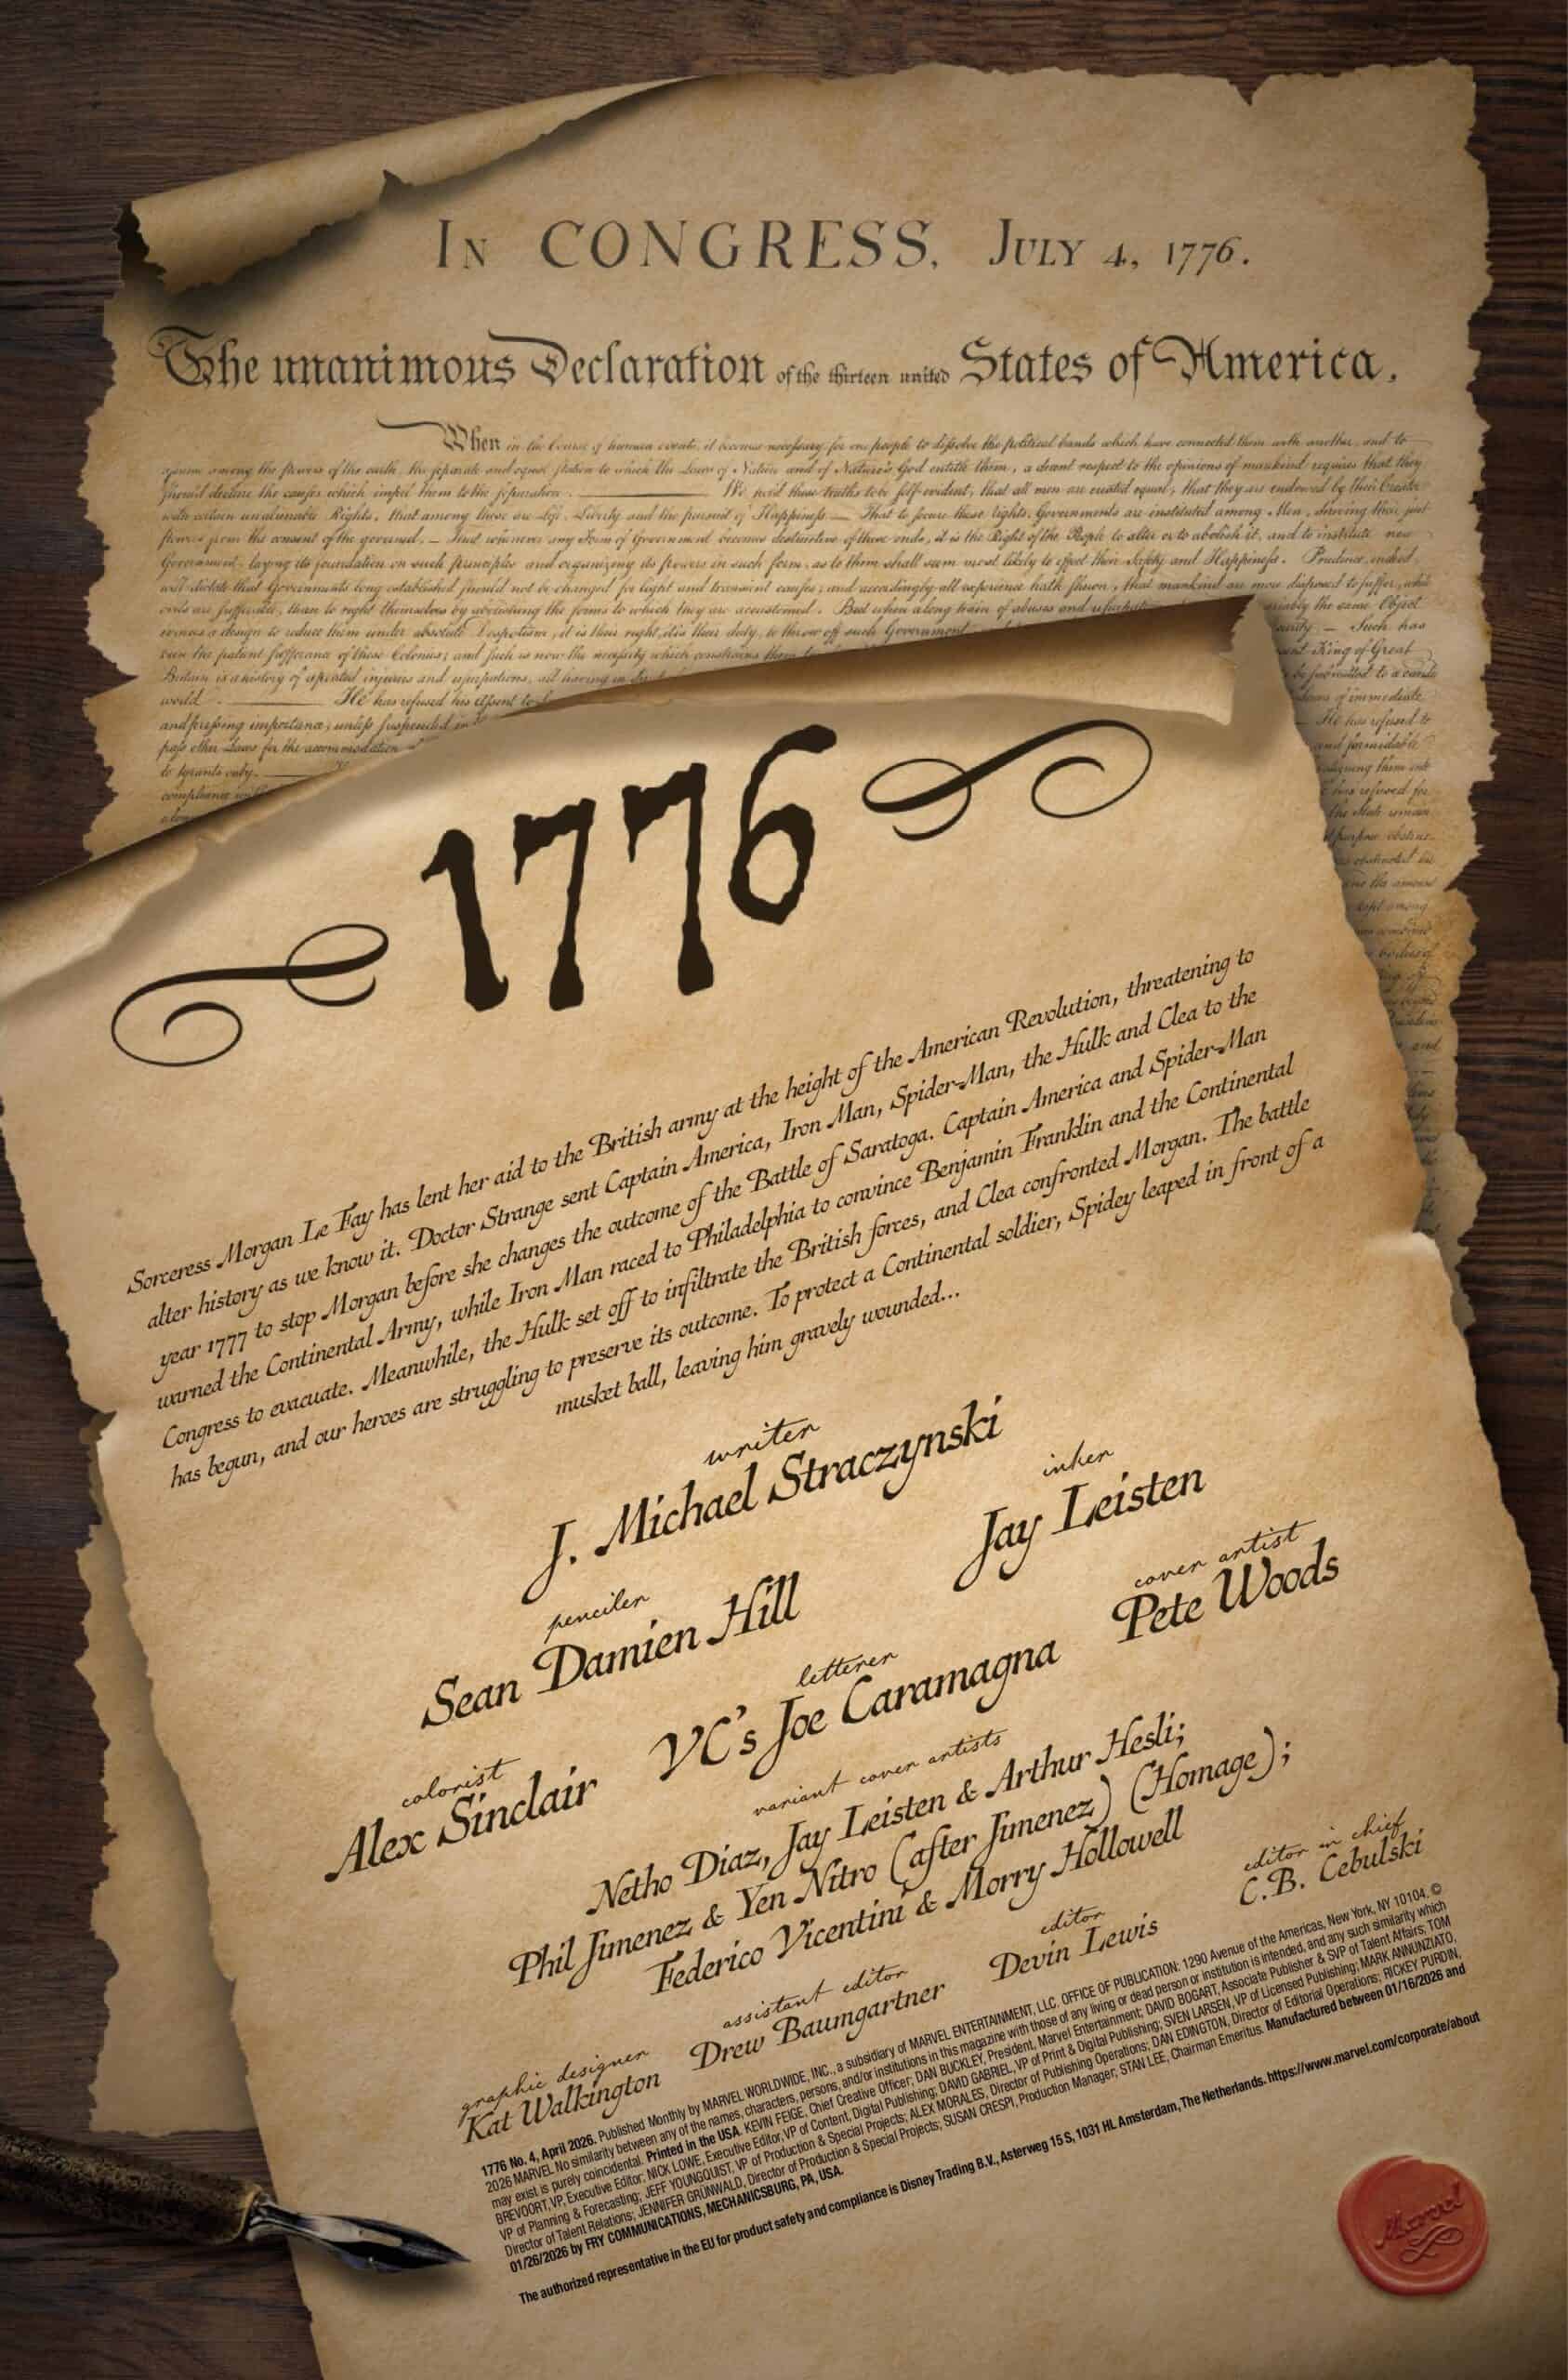 In CONGRESS, July 4, 1776.
The unanimous Declaration of the thirteen united States of America,
When in the Course of human events, it becomes necessary for one people to dissolve the political bands which have connected them with another, and to
assume among the powers of the earth, the separate and equal station to which the Laws of Nature and of Nature's God entitle them, a decent respect to the opinions of mankind requires that they
should declare the causes which impel them to the separation. We hold these truths to be self-evident, that all men are created equal, that they are endowed by their Creator
with certain unalienable Rights, that among these are Life, Liberty and the pursuit of Happiness. — That to secure these rights, Governments are instituted among Men, deriving their just
powers from the consent of the governed, — That whenever any Form of Government becomes destructive of these ends, it is the Right of the People to alter or to abolish it, and to institute new
Government, laying its foundation on such principles and organizing its powers in such form, as to them shall seem most likely to effect their Safety and Happiness. Prudence, indeed,
will dictate that Governments long established should not be changed for light and transient causes; and accordingly all experience hath shewn, that mankind are more disposed to suffer, while
evils are sufferable, than to right themselves by abolishing the forms to which they are accustomed. But when a long train of abuses and usurpations the same Object
evinces a design to reduce them under absolute Despotism, it is their right, it is their duty, to throw off such Government — Such has
been the patient sufferance of these Colonies; and such is now the necessity which constrains them King of Great
Britain is a history of repeated injuries and usurpations, all having in be submitted to a candid
world. He has refused his Assent to of immediate
and pressing importance, unless suspended in He has refused to
pass other Laws for the accommodation and formidable
to tyrants only. them into
compliance with has refused for
the State remain
1776
Sorceress Morgan Le Fay has lent her aid to the British army at the height of the American Revolution, threatening to
alter history as we know it. Doctor Strange sent Captain America, Iron Man, Spider-Man, the Hulk and Clea to the
year 1777 to stop Morgan before she changes the outcome of the Battle of Saratoga. Captain America and Spider-Man
warned the Continental Army, while Iron Man raced to Philadelphia to convince Benjamin Franklin and the Continental
Congress to evacuate. Meanwhile, the Hulk set off to infiltrate the British forces, and Clea confronted Morgan. The battle
has begun, and our heroes are struggling to preserve its outcome. To protect a Continental soldier, Spidey leaped in front of a
musket ball, leaving him gravely wounded...
writer
J. Michael Straczynski
penciler
Sean Damien Hill
inker
Jay Leisten
colorist
Alex Sinclair
letterer
VC's Joe Caramagna
cover artist
Pete Woods
variant cover artists
Netho Diaz, Jay Leisten & Arthur Hesli;
Phil Jimenez & Yen Nitro (after Jimenez) (Homage);
Federico Vicentini & Morry Hollowell
graphic designer
Kat Walkington
assistant editor
Drew Baumgartner
editor
Devin Lewis
editor in chief
C.B. Cebulski
1776 No. 4, April 2026. Published Monthly by MARVEL WORLDWIDE, INC., a subsidiary of MARVEL ENTERTAINMENT, LLC. OFFICE OF PUBLICATION: 1290 Avenue of the Americas, New York, NY 10104. ©
2026 MARVEL No similarity between any of the names, characters, persons, and/or institutions in this magazine with those of any living or dead person or institution is intended, and any such similarity which
may exist is purely coincidental. Printed in the USA. KEVIN FEIGE, Chief Creative Officer; DAN BUCKLEY, President, Marvel Entertainment; DAVID BOGART, Associate Publisher & SVP of Talent Affairs; TOM
BREVOORT, VP, Executive Editor; NICK LOWE, Executive Editor, VP of Content, Digital Publishing; DAVID GABRIEL, VP of Print & Digital Publishing; SVEN LARSEN, VP of Licensed Publishing; MARK ANNUNZIATO,
VP of Planning & Forecasting; JEFF YOUNGQUIST, VP of Production & Special Projects; ALEX MORALES, Director of Publishing Operations; DAN EDINGTON, Director of Editorial Operations; RICKEY PURDIN,
Director of Talent Relations; JENNIFER GRÜNWALD, Director of Production & Special Projects; SUSAN CRESPI, Production Manager; STAN LEE, Chairman Emeritus. Manufactured between 01/16/2026 and
01/26/2026 by FRY COMMUNICATIONS, MECHANICSBURG, PA, USA.
The authorized representative in the EU for product safety and compliance is Disney Trading B.V., Asterweg 15 S, 1031 HL Amsterdam, The Netherlands. https://www.marvel.com/corporate/about
Marvel